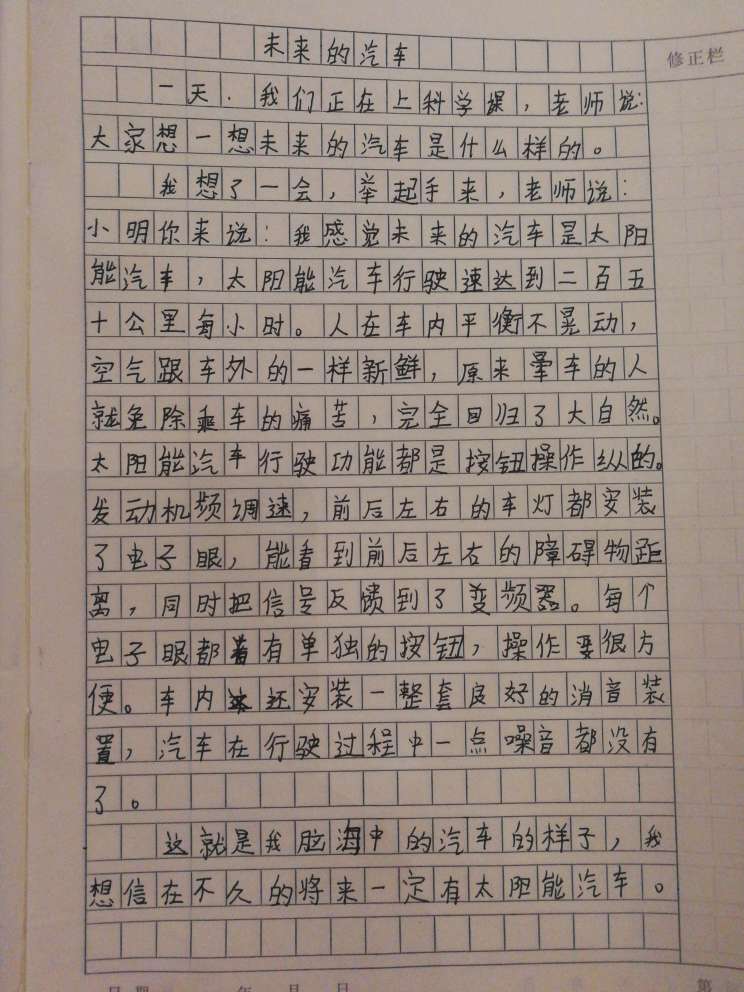 未来的汽车
修正栏
一天.我们正在上科学课,老师说:
大家想一想未来的汽车是什么样的。
我想了一会,举起手来,老师说:
小明你来说:我感觉未来的汽车是太阳
能汽车,太阳能汽车行驶速达到二百五
十公里每小时。人在车内平衡不晃动,
空气跟车外的一样新鲜,原来晕车的人
就免除乘车的痛苦,完全回归了大自然。
太阳能汽车行驶功能都是按钮操作纵的。
发动机频调速,前后左右的车灯都安装
了电子眼,能看到前后左右的障碍物距
离,同时把信号反馈到了变频器。每个
电子眼都有单独的按钮,操作要很方
便。车内还安装一整套良好的消音装
置,汽车在行驶过程中一点噪音都没有
了。
这就是我脑海中的汽车的样子,我
想信在不久的将来一定有太阳能汽车。
年 月 日
第